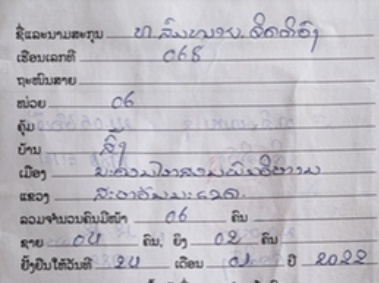 ຊື່ແລະນາມສະກຸນ ທ. ສົມໝາຍ.
ເຮືອນເລກທີ 068
ຖະໜົນສາຍ
ໜ່ວຍ 06
ຄຸ້ມ
ບ້ານ
ເມືອງ ນະຄອນໄກສອນພົມວິຫານ
ແຂວງ ສະຫວັນນະເຂດ.
ລວມຈຳນວນຄົນມີໜ້າ 06 ຄົນ
ຊາຍ 04 ຄົນ, ຍິງ 02 ຄົນ
ຢັ້ງຢືນໃຫ້ວັນທີ 24 ເດືອນ 01 ປີ 2022